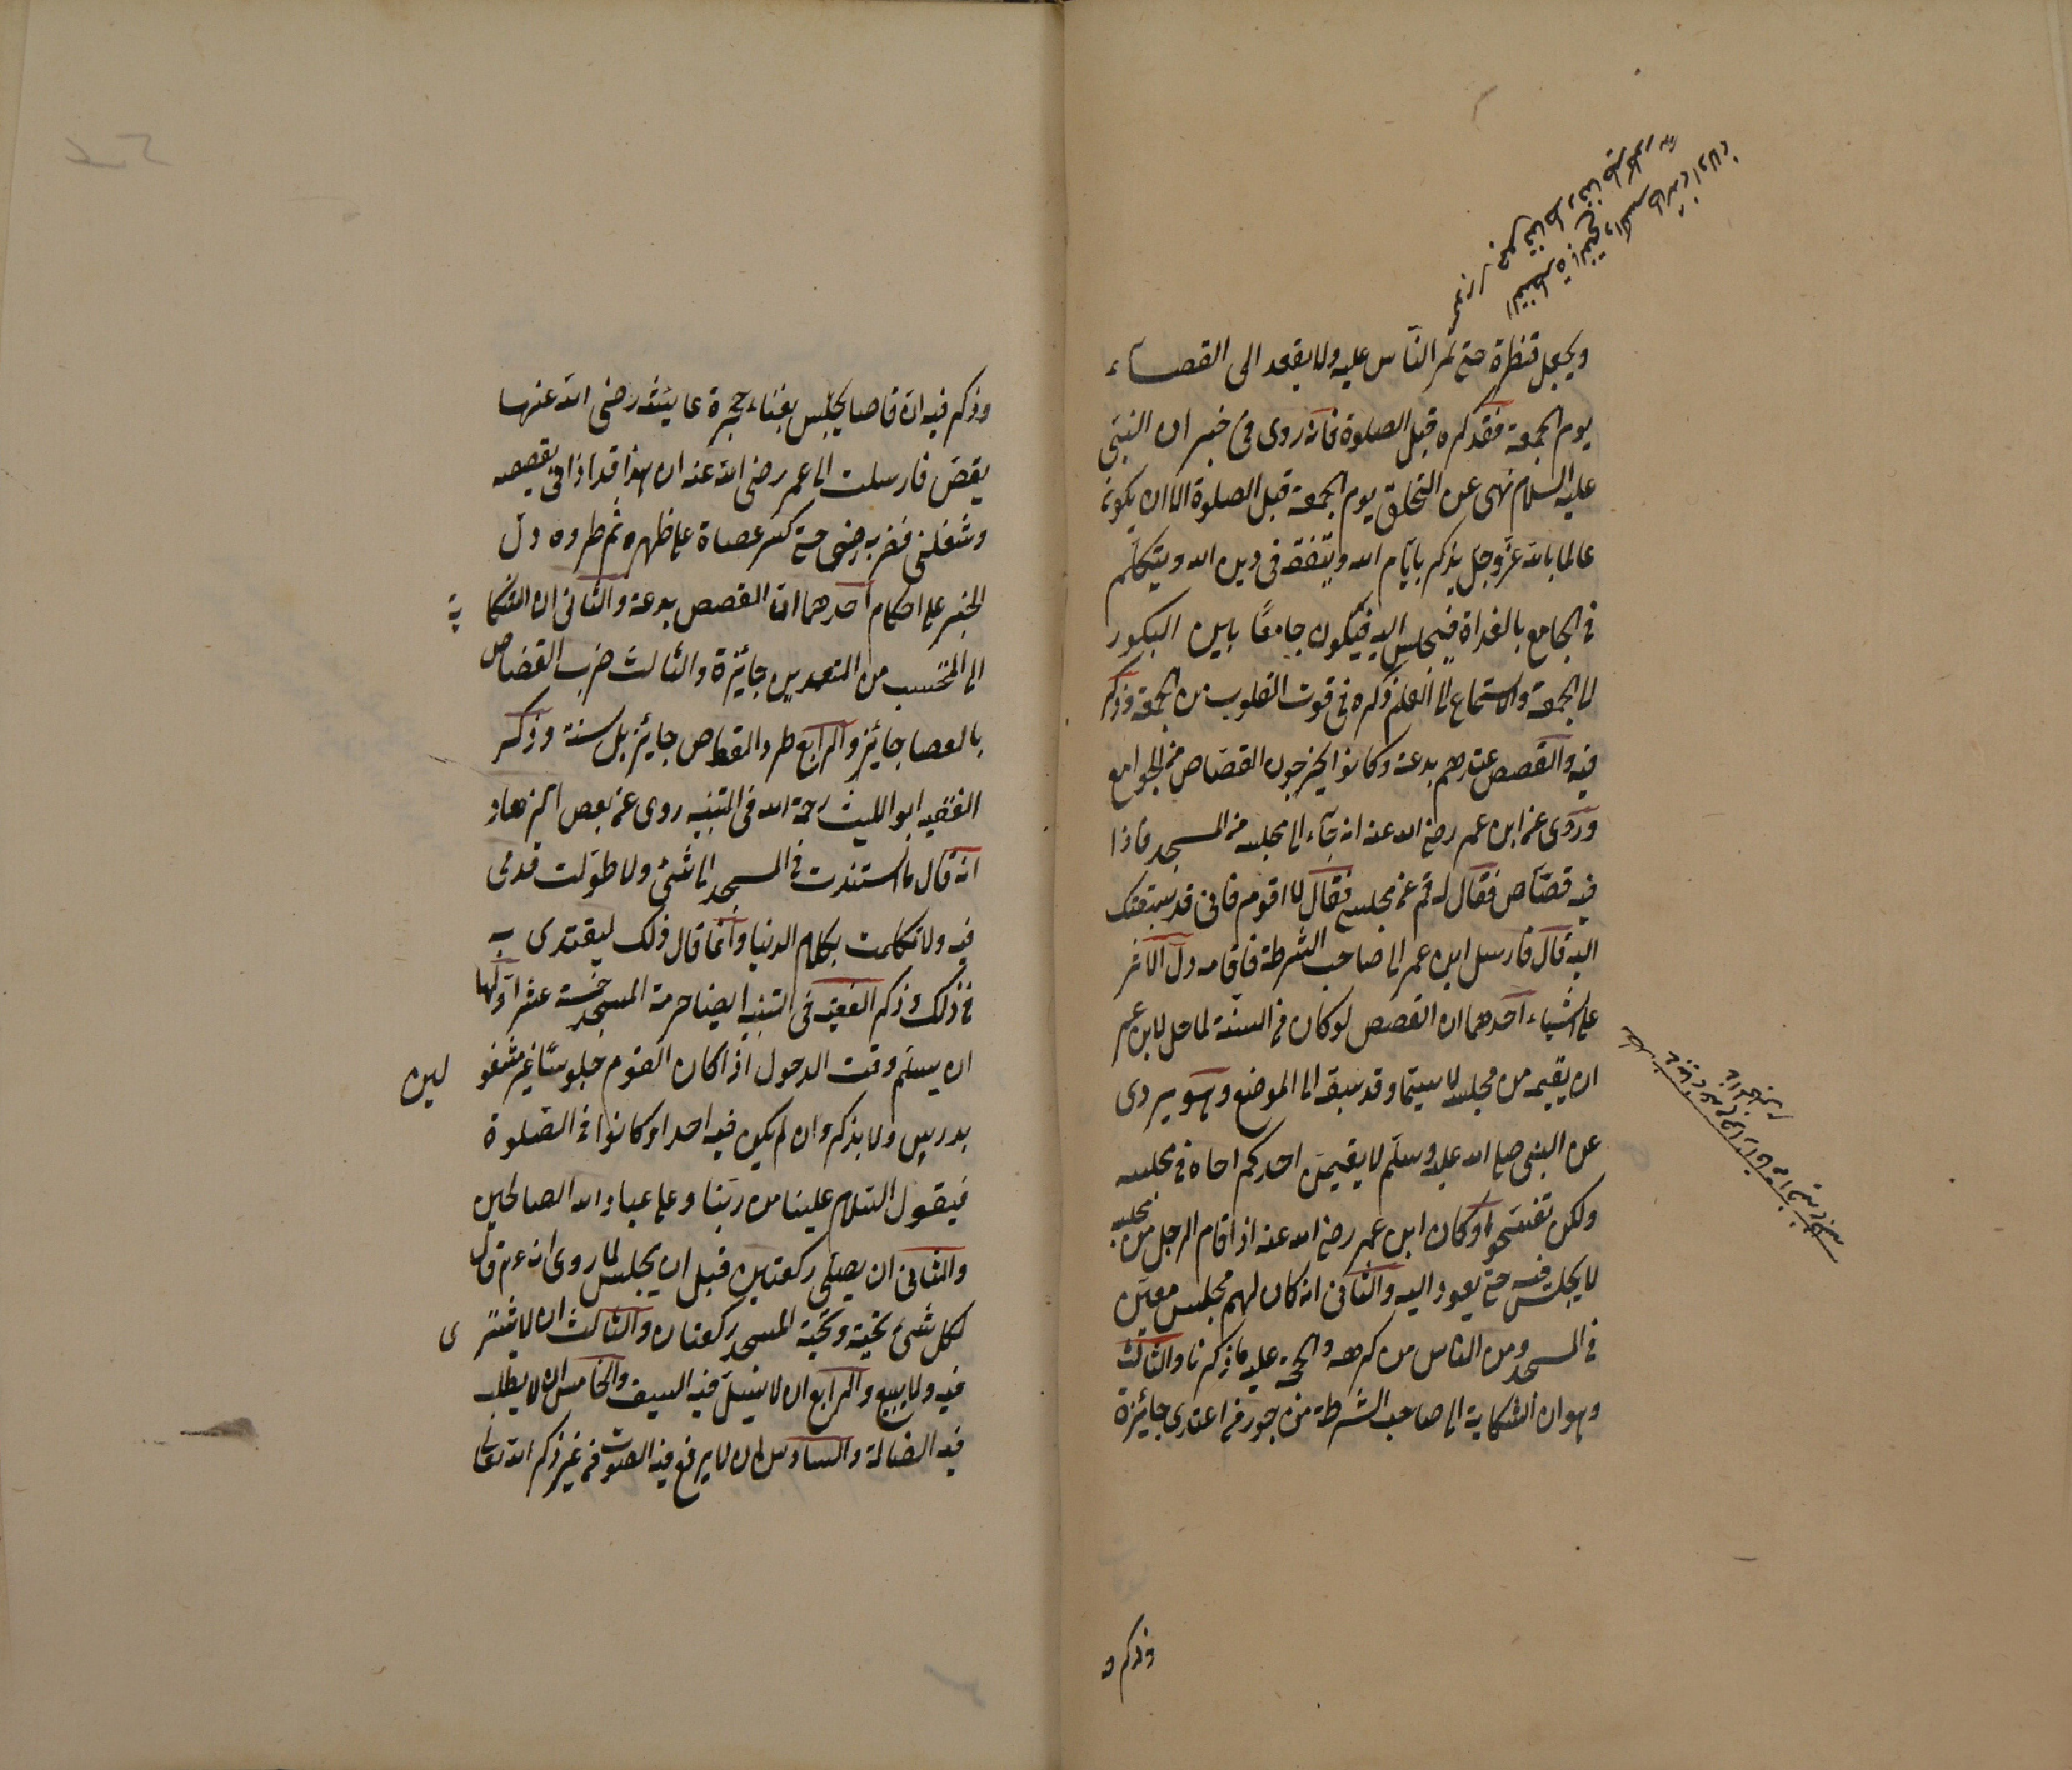 ويجعل قنطرة حتى تمر الناس عليه ولا يقعد الى القصاء
يوم الجمعة فقد كره قبل الصلوة فانه روى في خبر ان النبى
عليه السلام نهى عن التحلق يوم الجمعة قبل الصلوة الا ان يكون
عالما بالله عز وجل يذكر بايام الله ويتفقه في دين الله ويتكلم
في الجامع بالغداة فيجلس اليه فيكون جامعا بين البكور
الى الجمعة والاستماع الى العلم ذكره في قوت القلوب من الجمعة وذكر
فيه والقصص عندهم بدعة وكانوا يخرجون القصاص من الجوامع
وروى عن ابن عمر رضي الله عنه انه جاء الى مجلسه من المسجد فاذا
فيه قصاص فقال له قم عن مجلسي فقال لا اقوم فانى قد سبقتك
اليه قال فارسل ابن عمر الى صاحب الشرطة فاقامه دل الاثر
على اشياء احدهما ان القصص لو كان من السنة لما حل لابن عمر
ان يقيمه من مجلسه لا سيما وقد سبقه الى الموضع وهو يروى
عن النبى صلى الله عليه وسلم لا يقيمن احدكم اخاه في مجلسه
ولكن تفسحوا وكان ابن عمر رضي الله عنه اذا قام الرجل من مجلسه
لا يجلس فيه حتى يعود اليه والثانى انه كان لهم مجلس معين
في المسجد ومن الناس من كرهه والحجة عليه ما ذكرنا والثالث
وهو ان الشكاية الى صاحب الشرطة من جور من اعتدى جائزة
وذكر
وذكر فيه ان قاصا يجلس بفناء حجرة عايشة رضى الله عنها
يقص فارسلت الى عمر رضى الله عنه ان هذا قد اذانى بقصصه
وشغلنى فضربه حتى كسر عصاة على ظهره ثم طرده دل
الخبر على احكام احدهما ان القصص بدعة والثانى ان الشكاية
الى المحتسب من المتعدين جائزة والثالث ضرب القصاص
بالعصا جائز والرابع طرد القصاص جائز بل سنة وذكر
الفقيه ابو الليث رحمة الله في التنبيه روى عن بعض الزهاد
انه قال ما استندت في المسجد الى شئ ولا طولت قدمى
فيه ولا تكلمت بكلام الدنيا وانما قال ذلك ليقتدى به
في ذلك وذكر الفقيه في التنبيه ايضا حرمة المسجد خمسة عشر اولها
ان يسلم وقت الدخول اذا كان القوم جلوسا غير مشغولين
بدرس ولا بذكر وان لم يكن فيه احد او كانوا في الصلوة
فيقول السلام علينا من ربنا وعلى عباد الله الصالحين
والثانى ان يصلى ركعتين قبل ان يجلس لما روى انه عم قال
لكل شئ تحية وتحية المسجد ركعتان والثالث ان لا يشترى
فيه ولا يبيع والرابع ان لا يسل فيه السيف والخامس ان لا يطلب
فيه الضالة والسادس ان لا يرفع فيه الصوت من غير ذكر الله تعالى